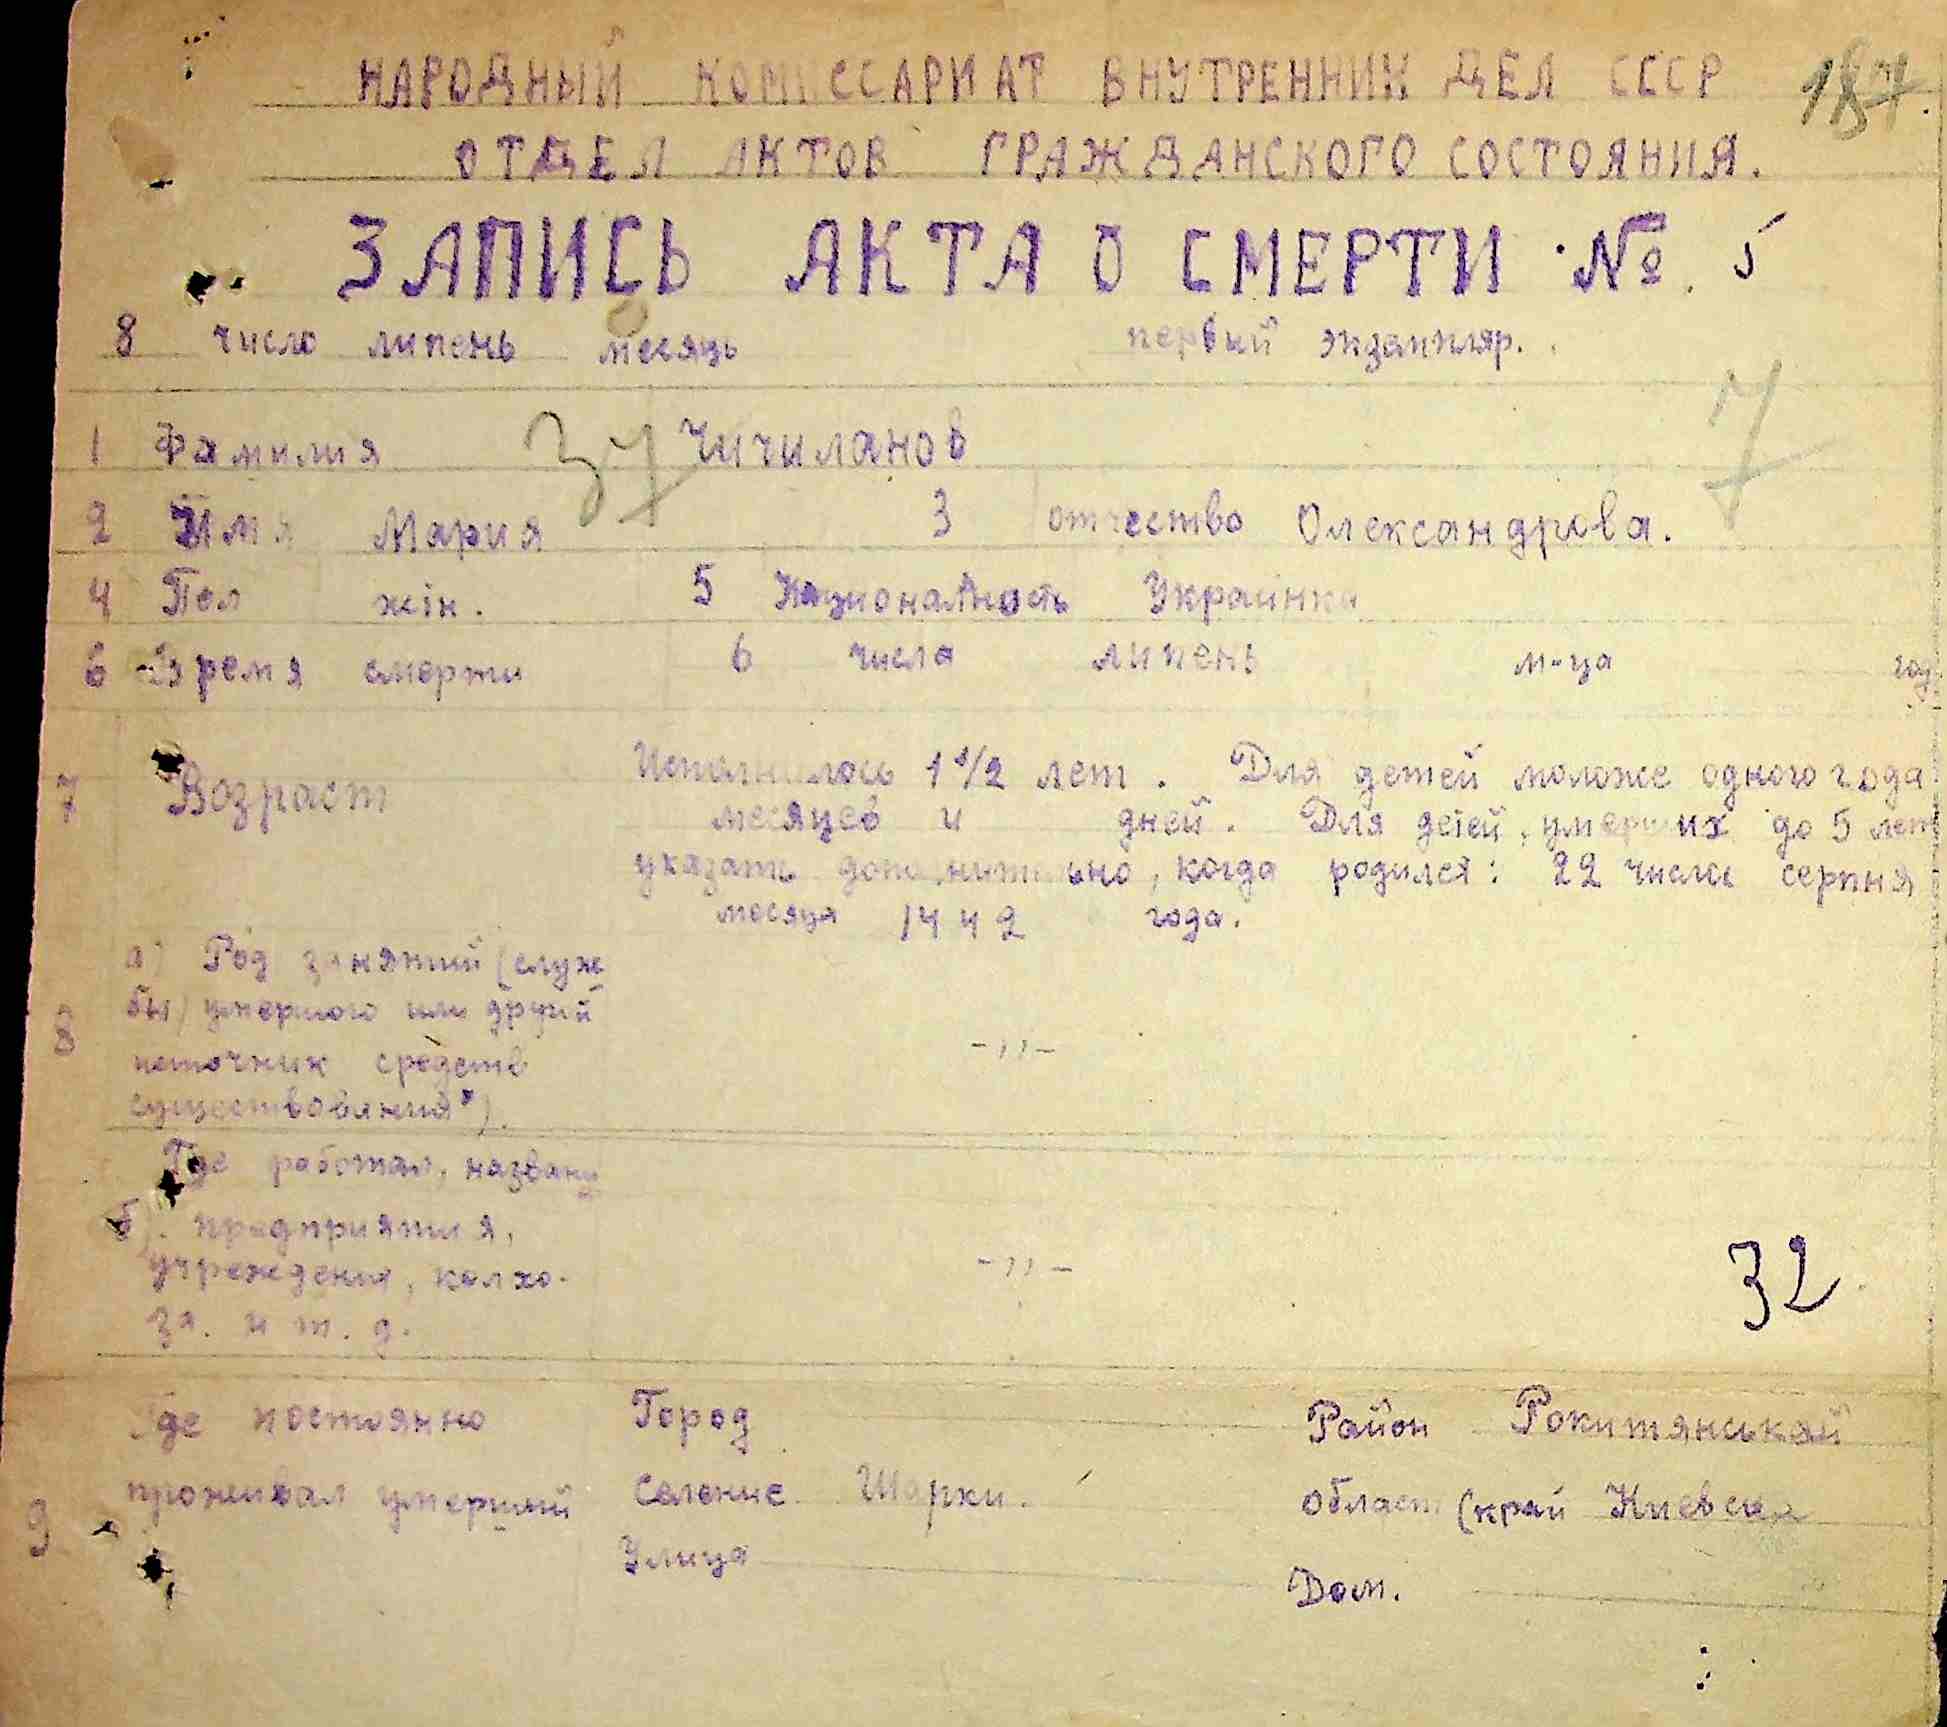 НАРОДНЫЙ КОМИССАРИАТ ВНУТРЕННИХ ДЕЛ СССР
ОТДЕЛ АКТОВ ГРАЖДАНСКОГО СОСТОЯНИЯ.
ЗАПИСЬ АКТА О СМЕРТИ № 5
8 число липень месяць первый экземпляр.
1 Фамилия 37 Чичиланов 7
2 Имя Мария 3 отчество Олександрова.
4 Пол жін. 5 Национальность Украинка
6 Время смерти 6 числа липень м-ца год
7 Возраст Исполнилось 1 1/2 лет. Для детей моложе одного года
месяцев и дней. Для детей, умерших до 5 лет
указать дополнительно, когда родился: 22 числа серпня
месяца 1442 года.
а) Род занятий (служ
бы) умершого или другий
8 источник средств -,,-
существования*).
Где работал, названи
б). предприятия,
учреждения, колхо- -,,-
за. и т. д. 32
Где постоянно Город Район Рокитянський
9 проживал умерший Селение Шарки. Област (край Киевска
Улица Дом.